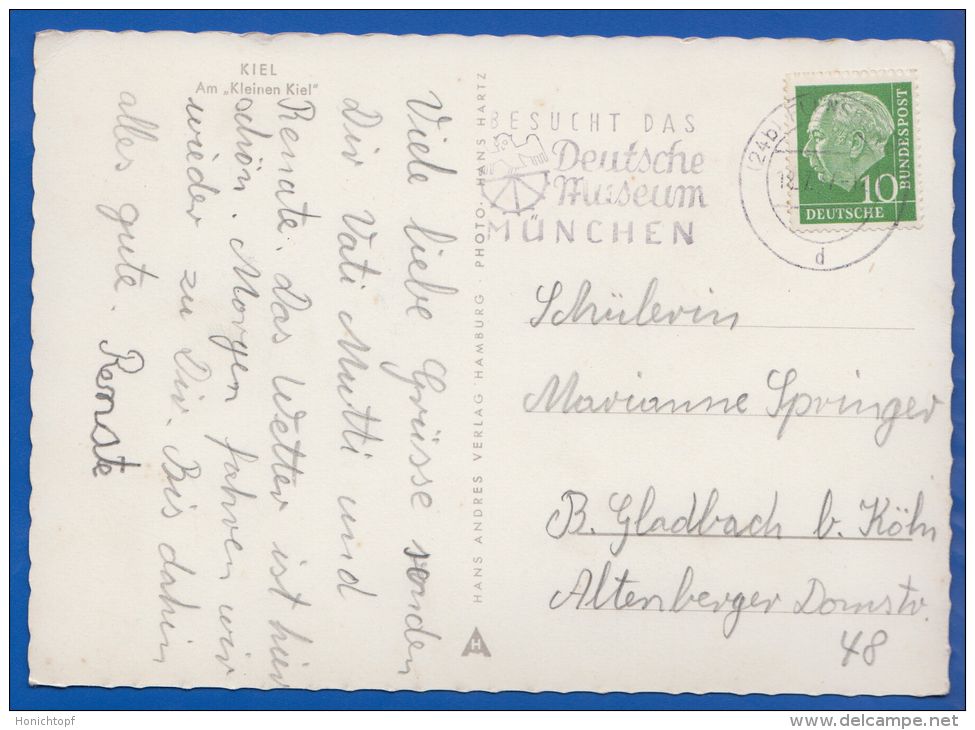 KIEL
Am „Kleinen Kiel"
Viele liebe Grüsse senden
Dir Vati Mutti und
Renate. Das Wetter ist hier
schön. Morgen fahren wir
wieder zu Dir. Bis dahin
alles gute. Renate
HANS ANDRES VERLAG HAMBURG · PHOTO: HANS HARTZ
H
BESUCHT DAS
Deutsche
Museum
MÜNCHEN
(24b)
d
10
DEUTSCHE
BUNDESPOST
Schülerin
Marianne Springer
B. Gladbach b. Köln
Altenberger Domstr.
48
Honichtopf
www.delcampe.net